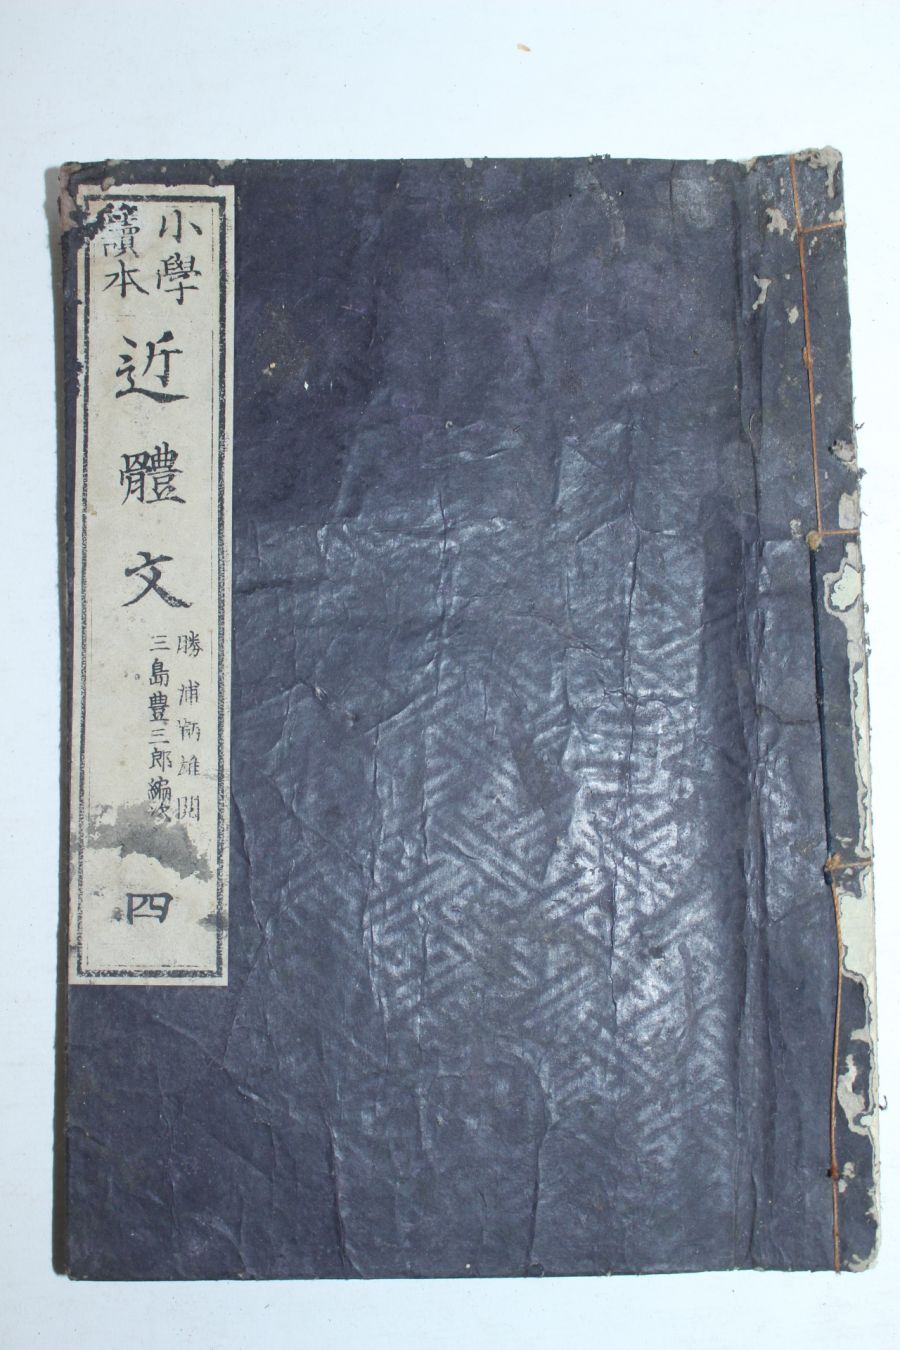 小學
讀本
近體文
勝浦鞆雄閱
三島豊三郎編次
四